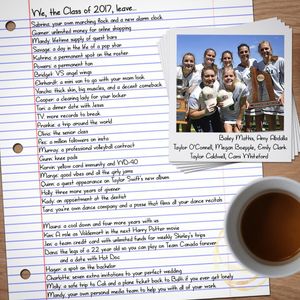 We, the Class of 2017, leave...
Sabrina, your own marching Rock and a new alarm clock
Gaimer: unlimited money for online shopping
Mandy: lifetime supply of guest bars
Savage: a day in the life of a pop star
Katrina: a permanent spot on the roster
Powers: a permanent tan
Bridget: VS angel wings
a mini van to go with your mom look
Yancha: thick skin, big muscles, and a decent comeback
Cooper: a cleaning lady for your locker
Tori: a dinner date with Jesus
TV: more records to break
Frankie: a trip around the world
Olivia: the senior class
Fez: a million followers on insta
Murray: a professional volleyball contract
Guinn: knee pads
Karvin: yellow card immunity and WD-40
Mange: good vibes and all the girly jams
Quinn: a guest appearance on Taylor Swift's new album
Holly: three more years of givener
Kody: an appointment at the dentist
Tara: you're own dance company and a posse that films all your dance recitals
Maura: a cat down and four more years with us
Kim: El role as Voldemort in the next Harry Potter movie
Jen: a team credit card with unlimited funds for weekly Shirley's trips
Diana: the legs of a 22 year old so you can play on Team Canada forever
and a date with Hot Doc
Hagar: a spot on the bachelor
Charlotte: seven extra invitations to your perfect wedding
Molly: a safe trip to Cali and a plane ticket back to if you ever get lonely
Mandy: your own personal media team to help you with all of your work
Bailey Mathis, Amy Abdalla
Taylor O'Connell, Megan Boepple, Emily Clark
Taylor Caldwell, Cami Whiteford